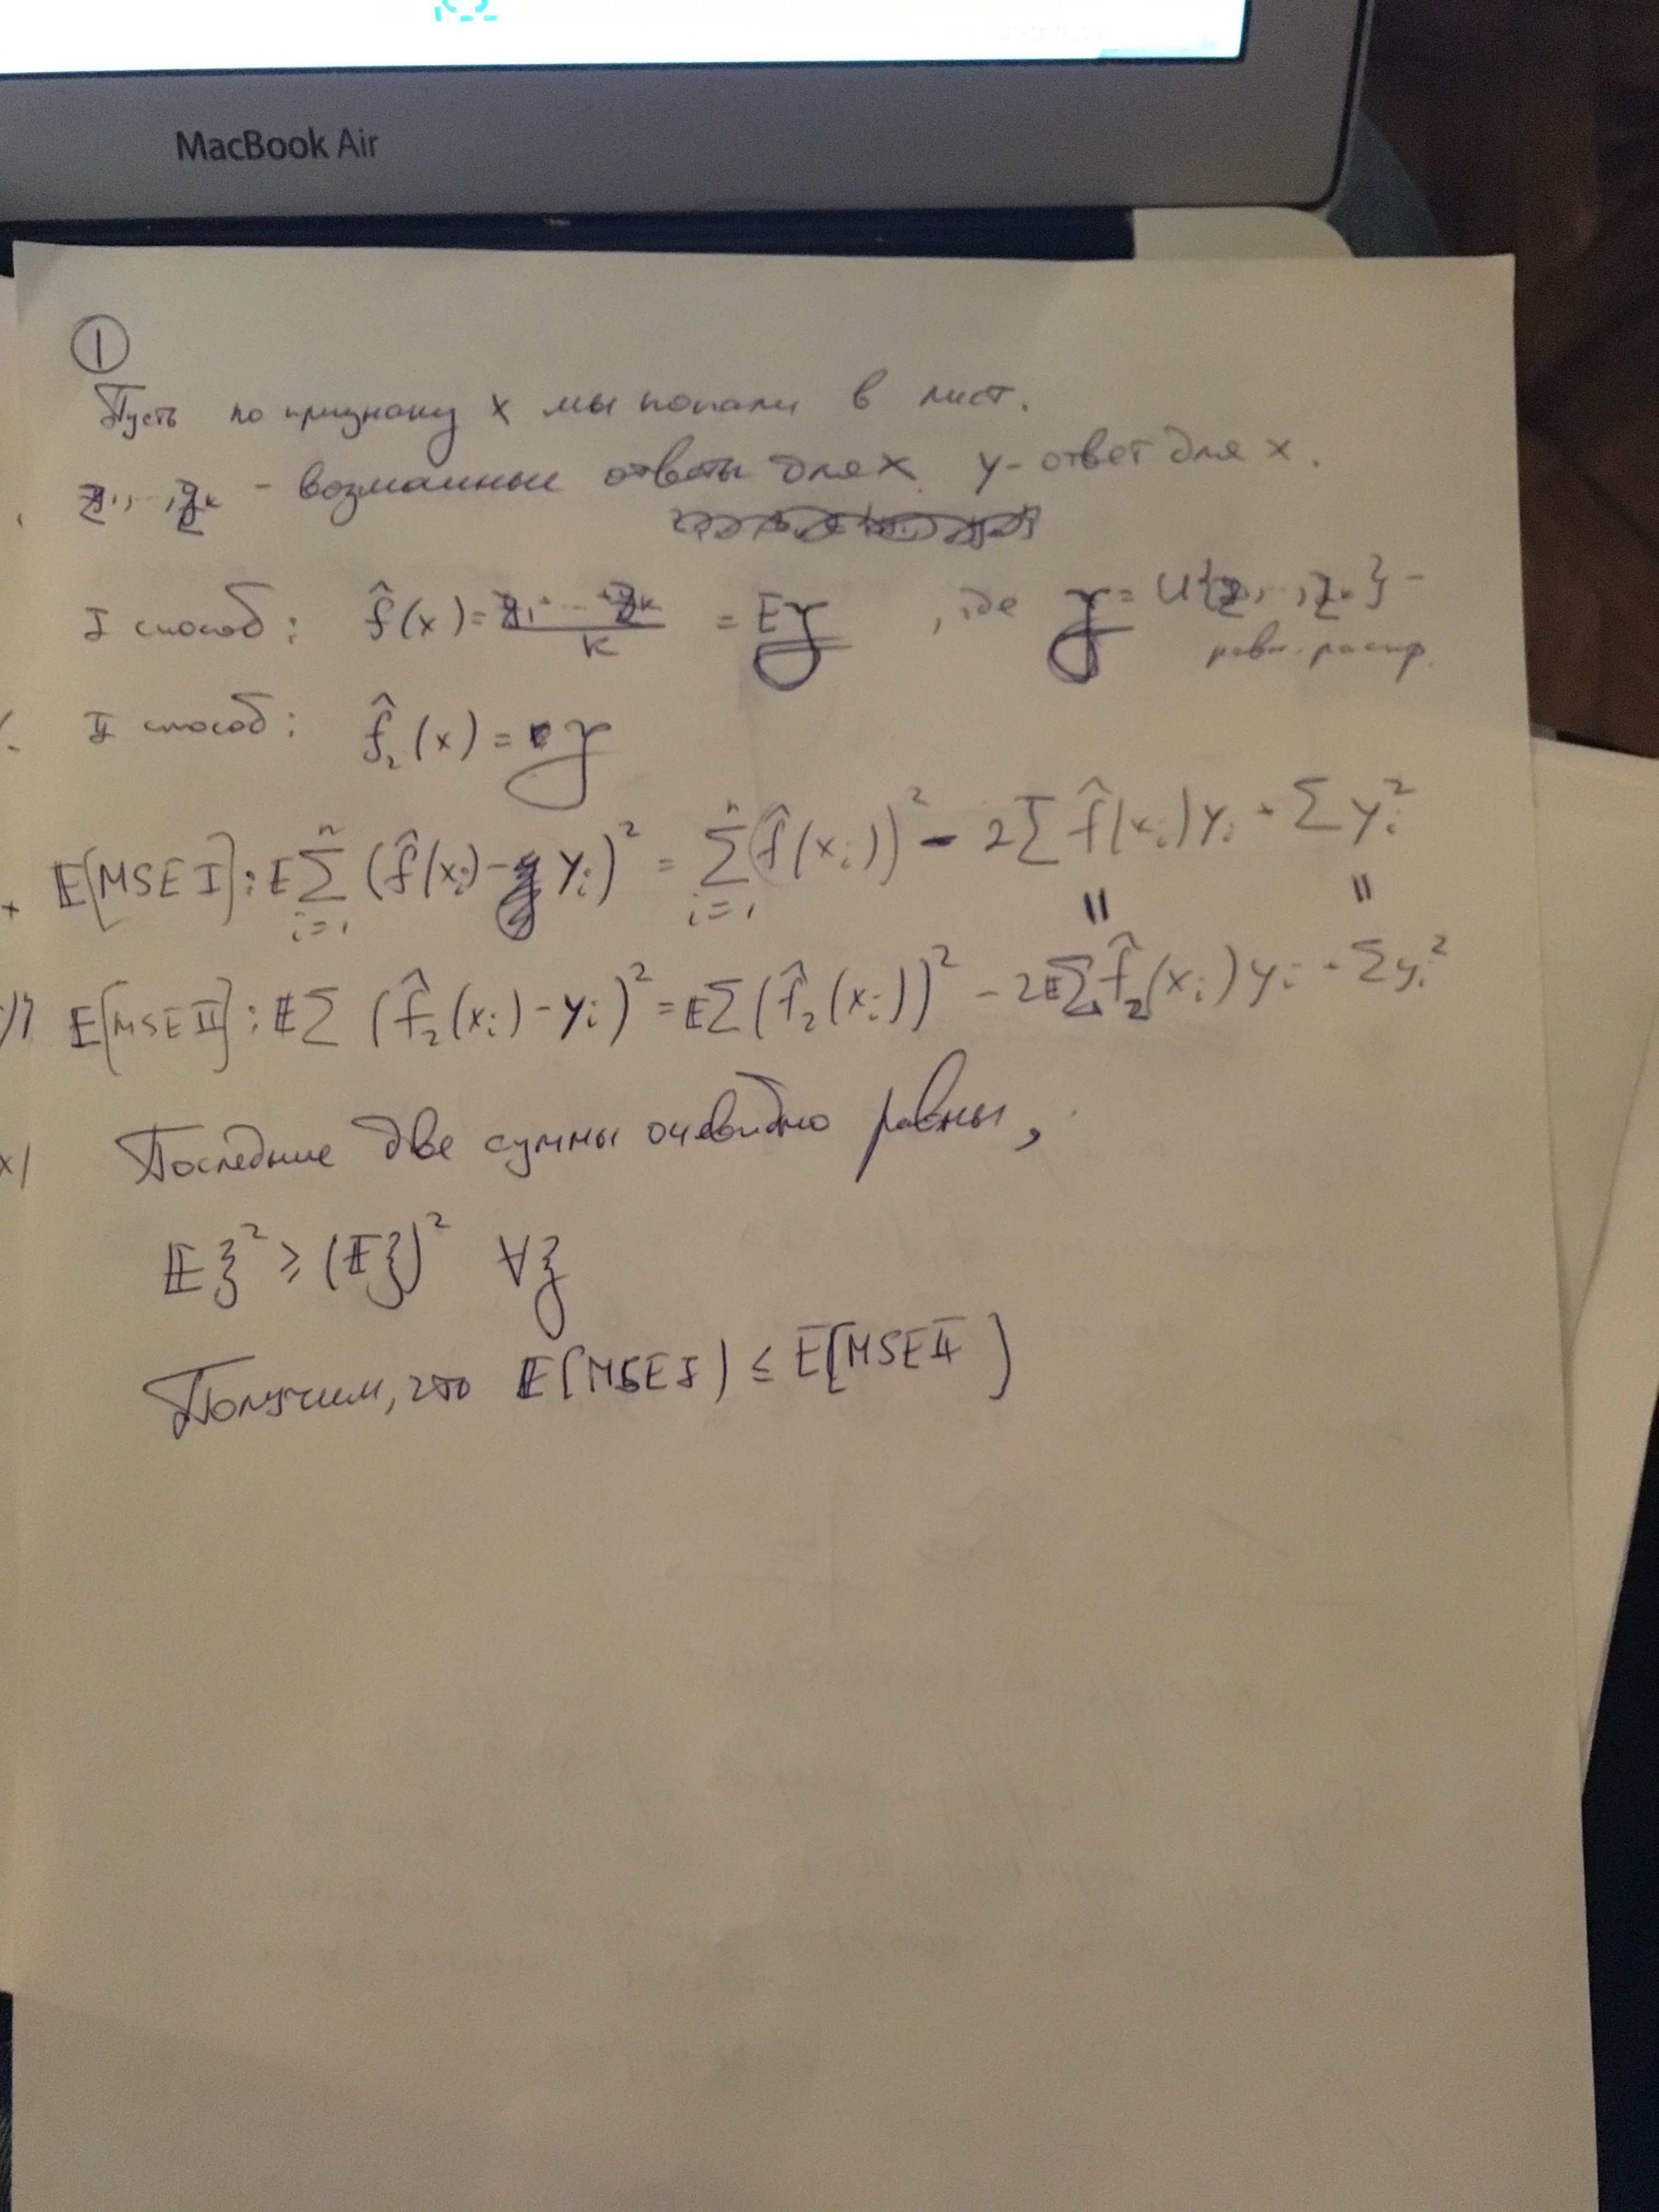 MacBook Air
①
Пусть по признаку x мы попали в лист.
z₁, ..., zₖ - возможные ответы для x. y - ответ для x.
I способ: f̂(x) = (z₁ + ... + zₖ)/k = Eξ, где ξ = U{z₁, ..., zₖ} -
равн. распр.
II способ: f̂₂(x) = ξ
E[MSE I]: E∑ⁿᵢ₌₁ (f̂(xᵢ) - yᵢ)² = ∑ⁿᵢ₌₁ (f̂(xᵢ))² - 2∑ f̂(xᵢ)yᵢ + ∑ yᵢ²
= =
E[MSE II]: E∑ (f̂₂(xᵢ) - yᵢ)² = E∑ (f̂₂(xᵢ))² - 2E∑ f̂₂(xᵢ)yᵢ + ∑ yᵢ²
Последние две суммы очевидно равны,
Eξ² ≥ (Eξ)² ∀ξ
Получим, что E[MSE I] ≤ E[MSE II]